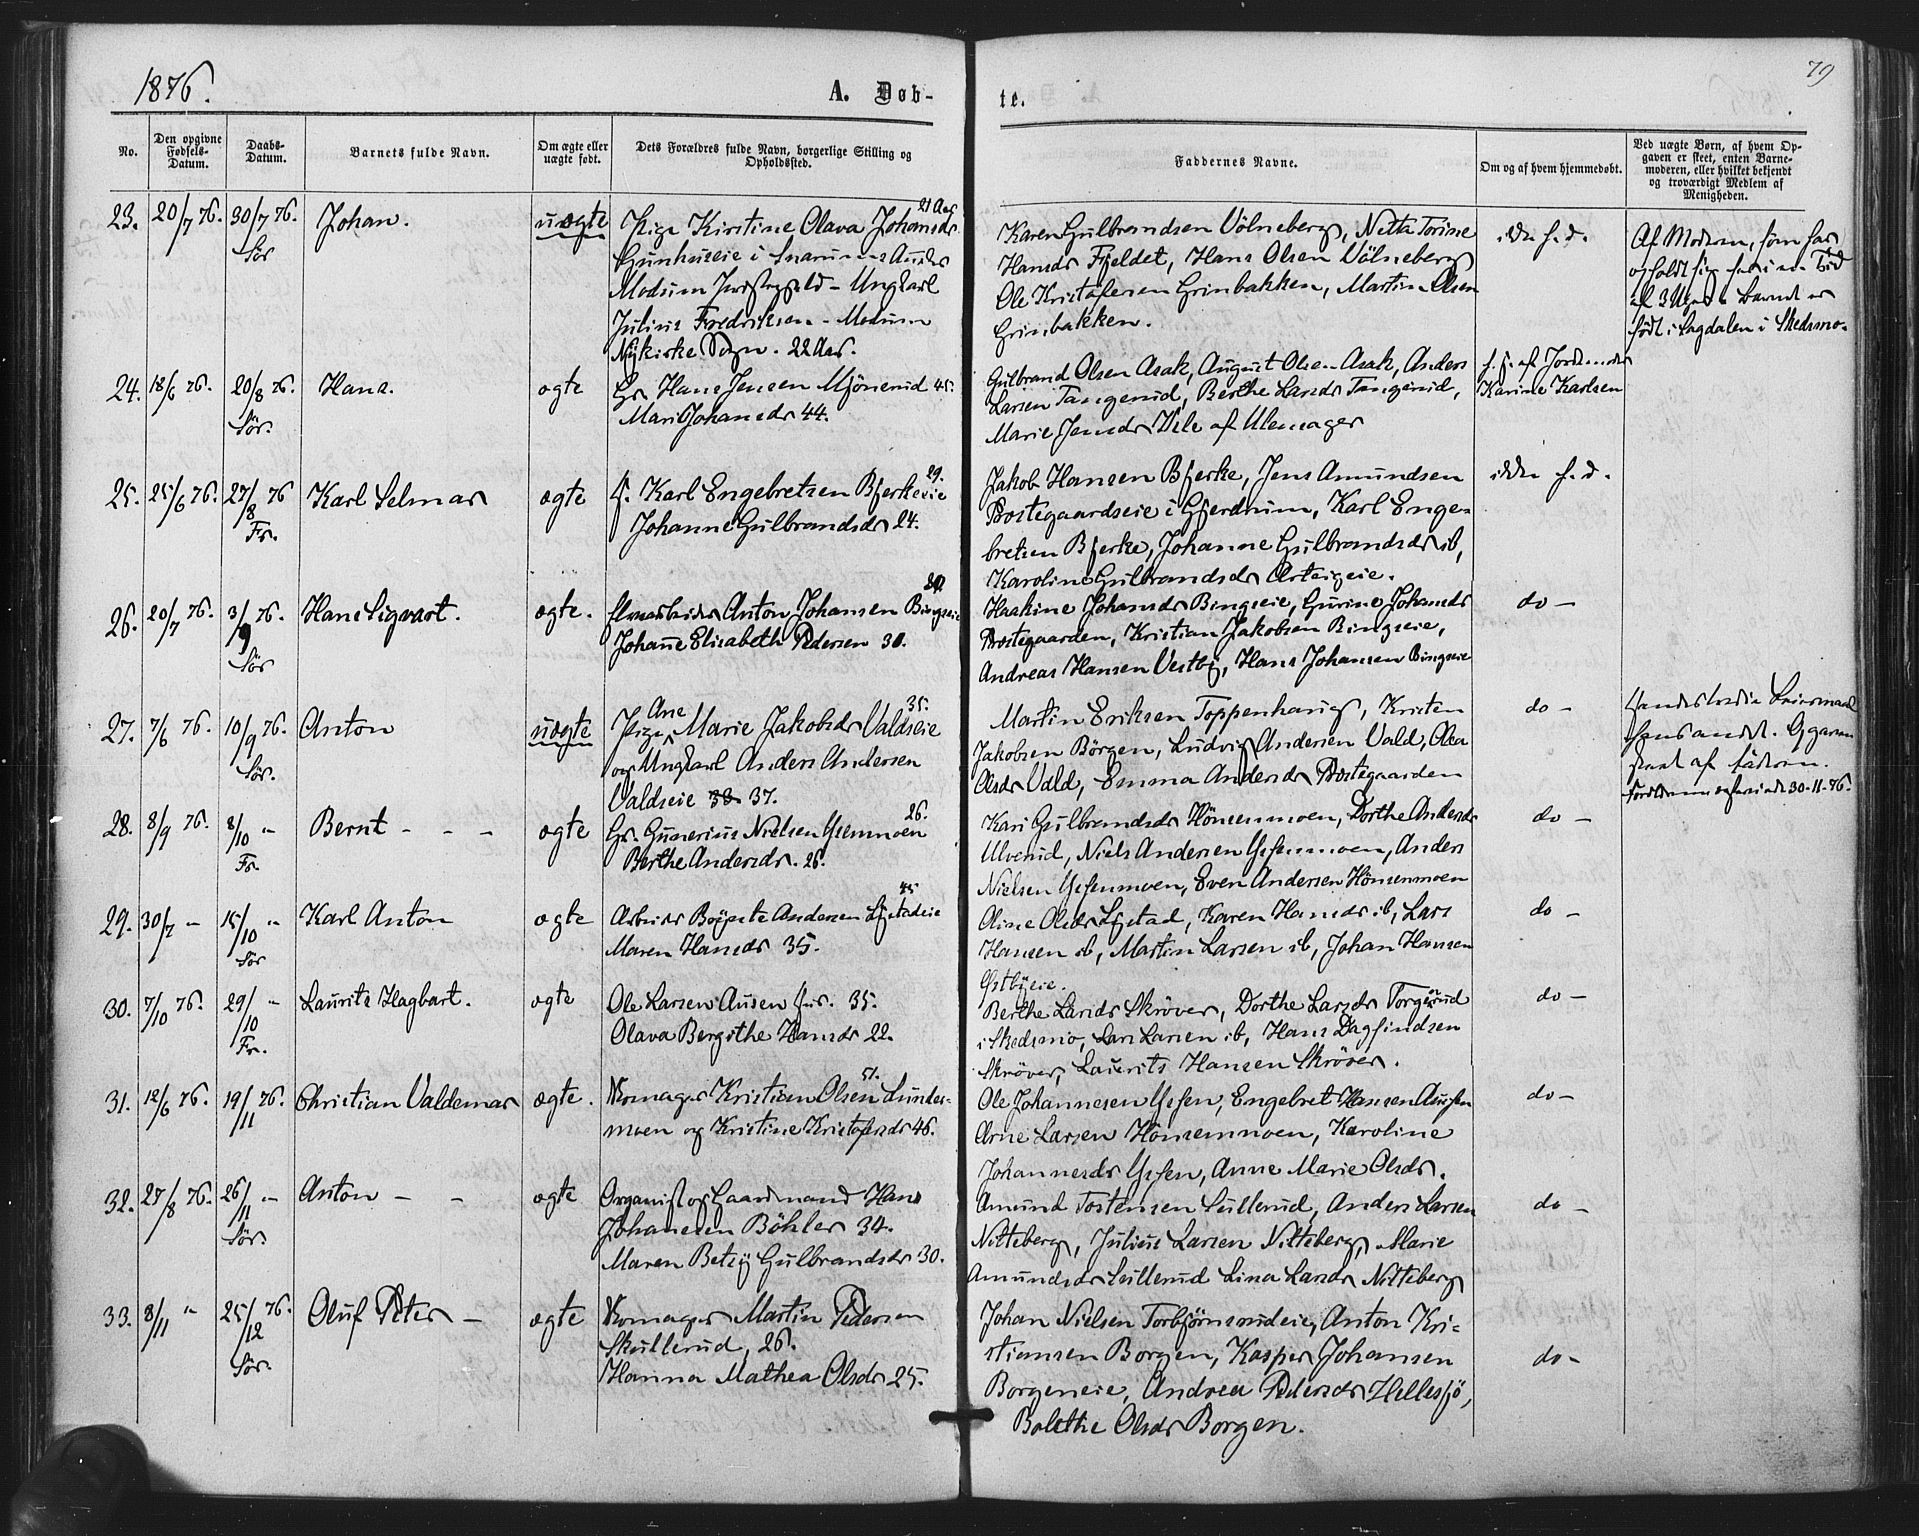 1876.
A. Døb-
te.
79
No.
Den opgivne Fødsels-Datum.
Daabs-Datum.
Barnets fulde Navn.
Om ægte eller uægte født.
Dets Forældres fulde Navn, borgerlige Stilling og Opholdssted.
Faddernes Navne.
Om og af hvem hjemmedøbt.
Ved uægte Børn, af hvem Op-
gaven er skeet, enten Barne-
moderen, eller hvilket bekjendt
og troværdigt Medlem af
Menigheden.
23. 20/7 76. 30/7 76. Sör Johan. uægte
Pige Kirstine Olava Johansdr 21 Aar
Gunhuseie i Snarums Andex
Modum Præstegjeld - Ungkarl
Julius Fredriksen - Modum
Nykirke Sogn. 22 Aar.
Karen Gulbrandsen Völneberg, Netta Torine
Hansdr Fjeldet, Hans Olsen Völneberg
Ole Kristofersen Grinbakken, Martin Olsen
Grinbakken.
ikke h. d.
Af Moderen, som har
opholdt sig her i en Tid
af 3 Uger. Barnet er
født i Sagdalen i Skedsmo.
24. 18/6 76. 20/8 76. Sör. Hans. ægte
Gr. Hans Jensen Mjönerud 45.
Mari Johansdr 44.
Gulbrand Olsen Asak, August Olsen Asak, Anders
Larsen Tangerud, Berthe Larsdr Tangerud,
Marie Jensdr Dele af Ulensager
h. d. af Jordemoder
Karine Karlsen
25. 25/6 76. 27/8 76 Fr. Karl Selmar ægte
f. Karl Engebretsen Bjerkeeie 29.
Johanne Gulbrandsdr 24.
Jakob Hansen Bjerke, Jens Amundsen
Prestegaardseie i Gjerdrum, Karl Enge-
bretsen Bjerke, Johanne Gulbrandsdr ib,
Karoline Gulbrandsdr Arteigeie.
ikke h. d.
26. 20/7 76. 3/9 76. Sör Hans Sigvart. ægte.
Anton Johansen Bingseie
Johanne Elisabeth Pedersen 30.
Haakine Johansdr Bingseie, Gurine Johansdr
Prestegaarden, Kristian Jakobsen Bingseie,
Andreas Hansen Vestby, Hans Johansen Bingseie
do -
27. 7/6 76. 10/9 76. Sör. Anton uægte
Pige Ane Marie Jakobsdr Valdseie 35.
og Ungkarl Anders Andersen
Valdseie 38 37.
Martin Eriksen Toppenhaug, Kristen
Jakobsen Börgen, Ludvig Andersen Vald, Olea
Olsdr Vald, Emma Andersdr Prestegaarden
do -
30-11-76.
28. 8/9 76. 8/10 " Fr. Bernt - - - ægte
Gr. Gunerius Nielsen Ysenmoen 26.
Berthe Andersdr. 26.
Kari Gulbrandsdr Hönsenmoen, Dorthe Andersdr
Ulverud, Niels Andersen Yssenmoen, Anders
Nielsen Yssenmoen, Even Andersen Hönsenmoen
do -
29. 30/7 - 15/10 " Sör Karl Anton ægte
Arbeider Andersen Lystadeie 45
Maren Hansdr 35.
Oline Olsdr Lystad, Karen Hansdr ib, Lars
Hansen ib, Martin Larsen ib, Johan Hansen
Østbyeie.
do -
30. 7/10 76. 29/10 " Fr. Laurits Hagbart. ægte
Ole Larsen Ausen 35.
Olava Bergithe Hansdr 22.
Berthe Larsdr Skröver, Dorthe Larsdr Torgerud
i Skedsmo, Lars Larsen ib, Hans Dagfindsen
Skröver, Laurits Hansen Skröver.
do -
31. 12/6 76. 19/11 76. Christian Valdemar ægte.
Skomager Kristian Olsen Lunder- 51.
moen og Kristine Kristofersdr 46.
Ole Johannesen Yssen, Engebret Hansen Aussen
Arne Larsen Hönsenmoen, Karoline
Johannesdr Yssen, Anne Marie Olsdr.
do -
32. 27/8 76. 26/11 " Sör. Anton - - ægte
Organist og Gaardmand Hans
Johannesen Böhler 34.
Maren Betsy Gulbrandsdr 30.
Amund Tostensen Sullerud, Anders Larsen
Nitteberg, Julius Larsen Nitteberg, Marie
Amundsdr Sullerud Lina Larsdr Nitteberg
do -
33. 8/11 " 25/12 76. Sör. Oluf Peter - ægte
Skomager Martin Pedersen
Skullerud, 26.
Hanna Mathea Olsdr 25.
Johan Nielsen Torbjörnsrudeie, Anton Kri-
stiansen Borgen, Kasper Johansen
Borgeneie, Andrea Pedersdr Hellesjö,
Bolethe Olsdr Borgen.
do -